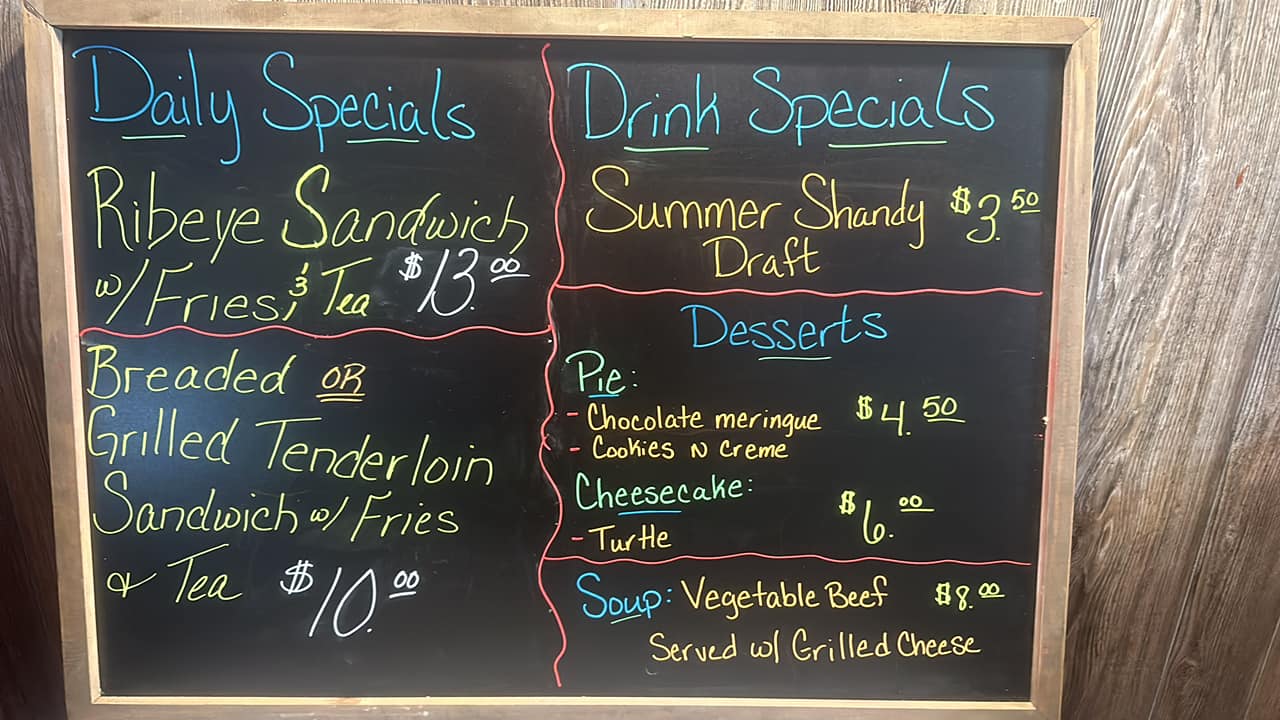 Daily Specials
Ribeye Sandwich
w/ Fries, & Tea $13.00
Breaded OR
Grilled Tenderloin
Sandwich w/ Fries
& Tea $10.00
Drink Specials
Summer Shandy $3.50
Draft
Desserts
Pie:
- Chocolate meringue $4.50
- Cookies N Creme
Cheesecake:
- Turtle $6.00
Soup: Vegetable Beef $8.00
Served w/ Grilled Cheese